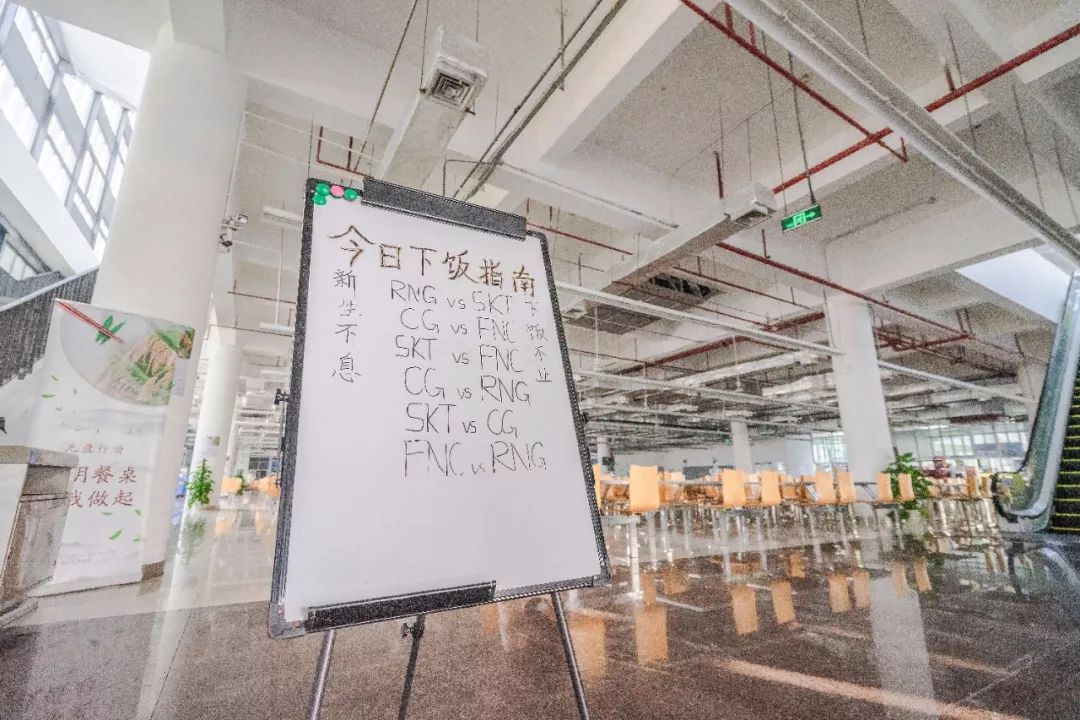 今日下饭指南
新生不息
RNG vs SKT
CG vs FNC
SKT vs FNC
CG vs RNG
SKT vs CG
FNC vs RNG
下饭本业
光盘行动
明餐桌
我做起